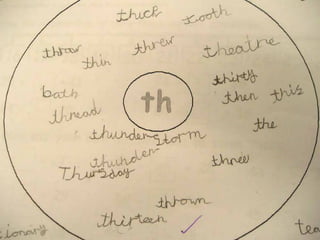 thick
tooth
throw
threw
theatre
thin
thirty
bath
then this
thread
th
the
thunderstorm
thunder
three
Thursday
thrown
thirteen
tionary
tea